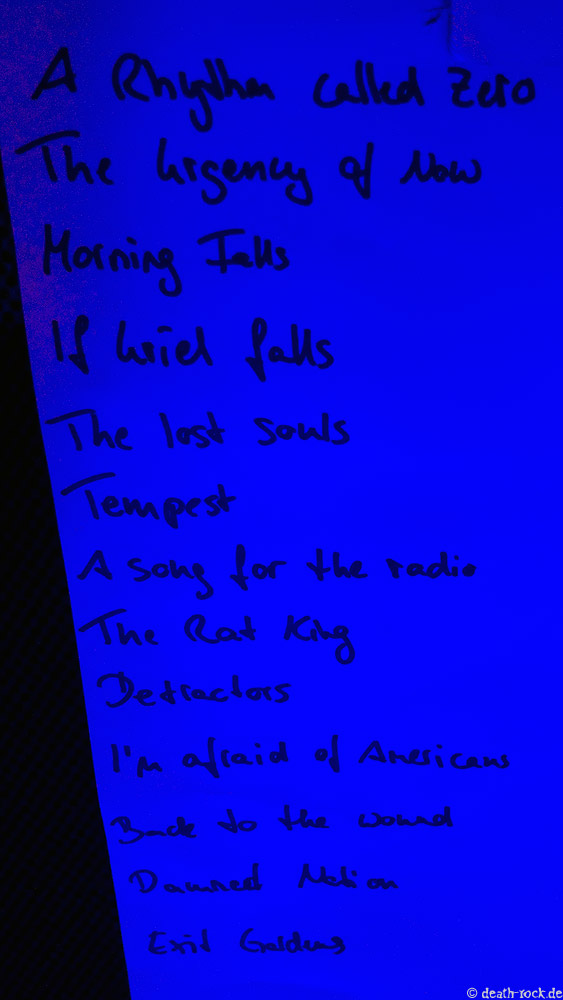 A Rhythm called Zero
The Urgency of Now
Morning Falls
If Uriel falls
The lost souls
Tempest
A song for the radio
The Rat King
Detractors
I'm afraid of Americans
Back to the wound
Damned Nation
Exit Gardens
© death-rock.de